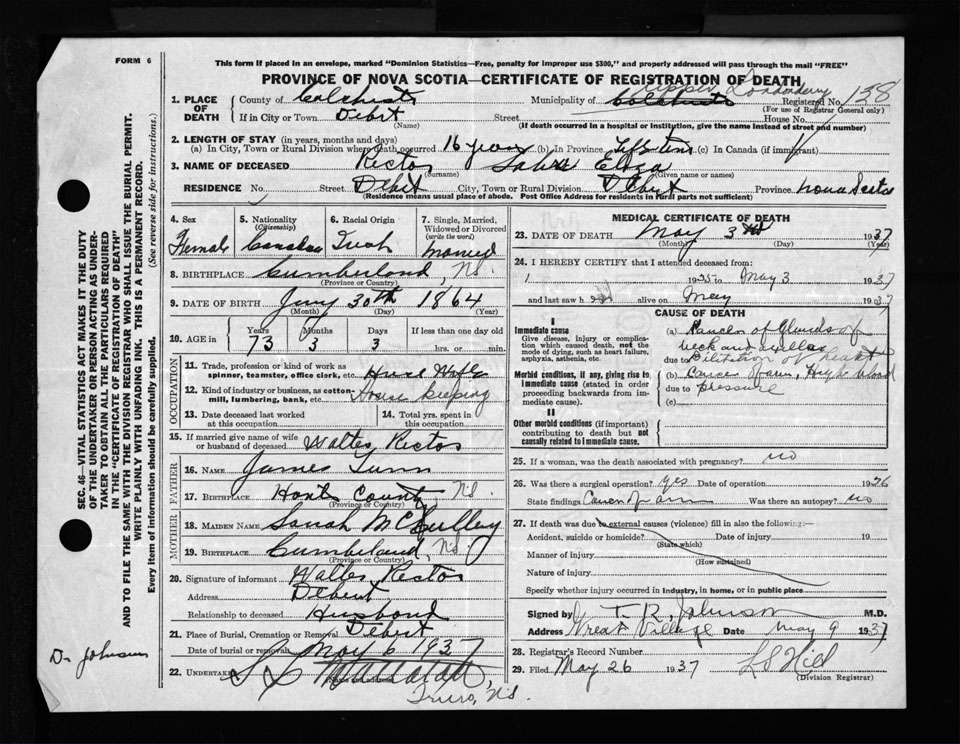 FORM 6
This form if placed in an envelope, marked "Dominion Statistics—Free, penalty for improper use $300," and properly addressed will pass through the mail "FREE"
PROVINCE OF NOVA SCOTIA—CERTIFICATE OF REGISTRATION OF DEATH
Upper Londonderry
1. PLACE OF DEATH County of Colchester Municipality of Colchester Registered No. 138
(For use of Registrar General only)
If in City or Town Debert Street House No.
(Name) (If death occurred in a hospital or institution, give the name instead of street and number)
2. LENGTH OF STAY (in years, months and days)
(a) In City, Town or Rural Division where death occurred 16 years (b) In Province Lifetime (c) In Canada (if immigrant)
3. NAME OF DECEASED Rector Eliza
(Surname) (Given name or names)
RESIDENCE No. Street Debert City, Town or Rural Division Debert Province Nova Scotia
(Residence means usual place of abode. Post Office Address for residents in Rural parts not sufficient)
4. Sex Female
5. Nationality (Citizenship) Canadian
6. Racial Origin Irish
7. Single, Married, Widowed or Divorced (write the word) Married
8. BIRTHPLACE Cumberland, N.S.
(Province or Country)
9. DATE OF BIRTH 30th 1864
(Month) (Day) (Year)
10. AGE in Years 73 Months 3 Days 3 If less than one day old hrs. or min.
OCCUPATION
11. Trade, profession or kind of work as spinner, teamster, office clerk, etc. House Wife
12. Kind of industry or business, as cotton-mill, lumbering, bank, etc. House keeping
13. Date deceased last worked at this occupation
14. Total yrs. spent in this occupation
15. If married give name of wife or husband of deceased Walter Rector
FATHER
16. NAME James
17. BIRTHPLACE Hants County N.S.
(Province or Country)
MOTHER
18. MAIDEN NAME Sarah McCulley
19. BIRTHPLACE Cumberland, N.S.
(Province or Country)
20. Signature of informant Walter Rector
Address Debert
Relationship to deceased Husband
21. Place of Burial, Cremation or Removal Debert
Date of burial or removal May 6 1937
22. UNDERTAKER
(Name and address)
Truro, N.S.
MEDICAL CERTIFICATE OF DEATH
23. DATE OF DEATH May 3rd 1937
(Month) (Day) (Year)
24. I HEREBY CERTIFY that I attended deceased from:
1935 to May 3 1937
and last saw her alive on May 1937
CAUSE OF DEATH
I
Immediate cause
Give disease, injury or complication which caused death, not the mode of dying, such as heart failure, asphyxia, asthenia, etc.
(a) Cancer of Glands of
neck and axillae
due to Dilitation of heart
Morbid conditions, if any, giving rise to immediate cause (stated in order proceeding backwards from immediate cause).
(b) Cancer of arm, High blood
due to pressure
(c)
II
Other morbid conditions (if important) contributing to death but not causally related to immediate cause.
25. If a woman, was the death associated with pregnancy? no
26. Was there a surgical operation? yes Date of operation 1936
State findings Cancer of arm Was there an autopsy? no
27. If death was due to external causes (violence) fill in also the following:—
Accident, suicide or homicide? Date of injury 19
(State which)
Manner of injury
(How sustained)
Nature of injury
Specify whether injury occurred in Industry, in home, or in public place
Signed by T. R. Johnson M.D.
Address Great Village Date May 9 1937
28. Registrar's Record Number
29. Filed May 26 1937 L S Hill
(Division Registrar)
SEC. 46—VITAL STATISTICS ACT MAKES IT THE DUTY
OF THE UNDERTAKER OR PERSON ACTING AS UNDER-
TAKER TO OBTAIN ALL THE PARTICULARS REQUIRED
IN THE "CERTIFICATE OF REGISTRATION OF DEATH"
AND TO FILE THE SAME WITH THE DIVISION REGISTRAR WHO SHALL ISSUE THE BURIAL PERMIT.
WRITE PLAINLY WITH UNFADING INK. THIS IS A PERMANENT RECORD.
Every item of information should be carefully supplied. (See reverse side for instructions.)
Dr Johnson